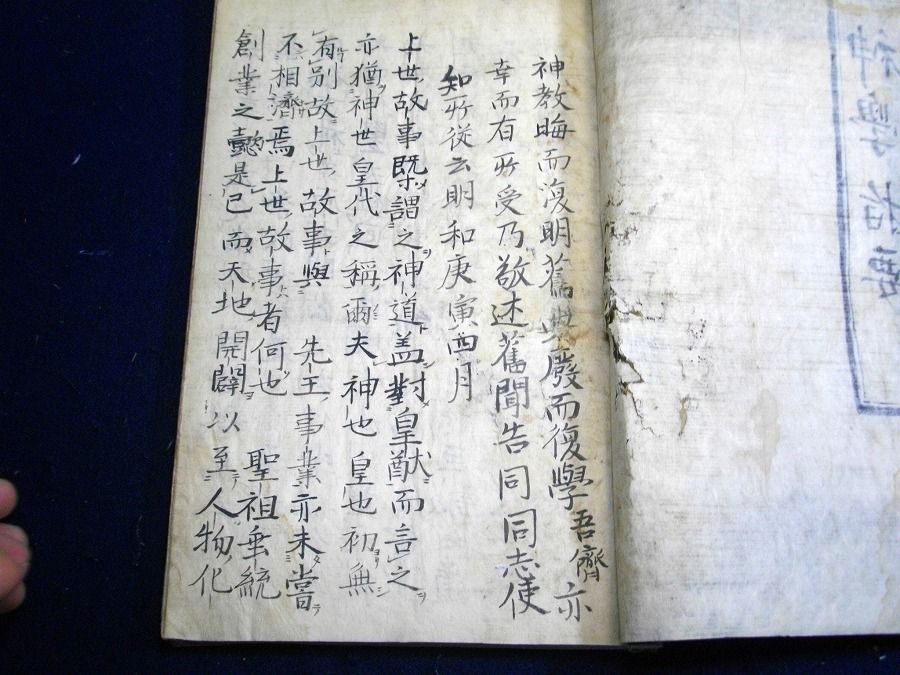 神教晦而復明舊典廢而復學吾儕亦
幸而有所受乃敬述舊聞告同同志使
知所従云明和庚寅四月
上世故事既謂之神道盖對皇猷而言之
亦猶神世皇代之稱爾夫神也皇也初無
有別故上世故事與 先王事業亦未嘗
不相濟焉上世故事者何也 聖祖垂統
創業之懿是已而天地開闢以至人物化